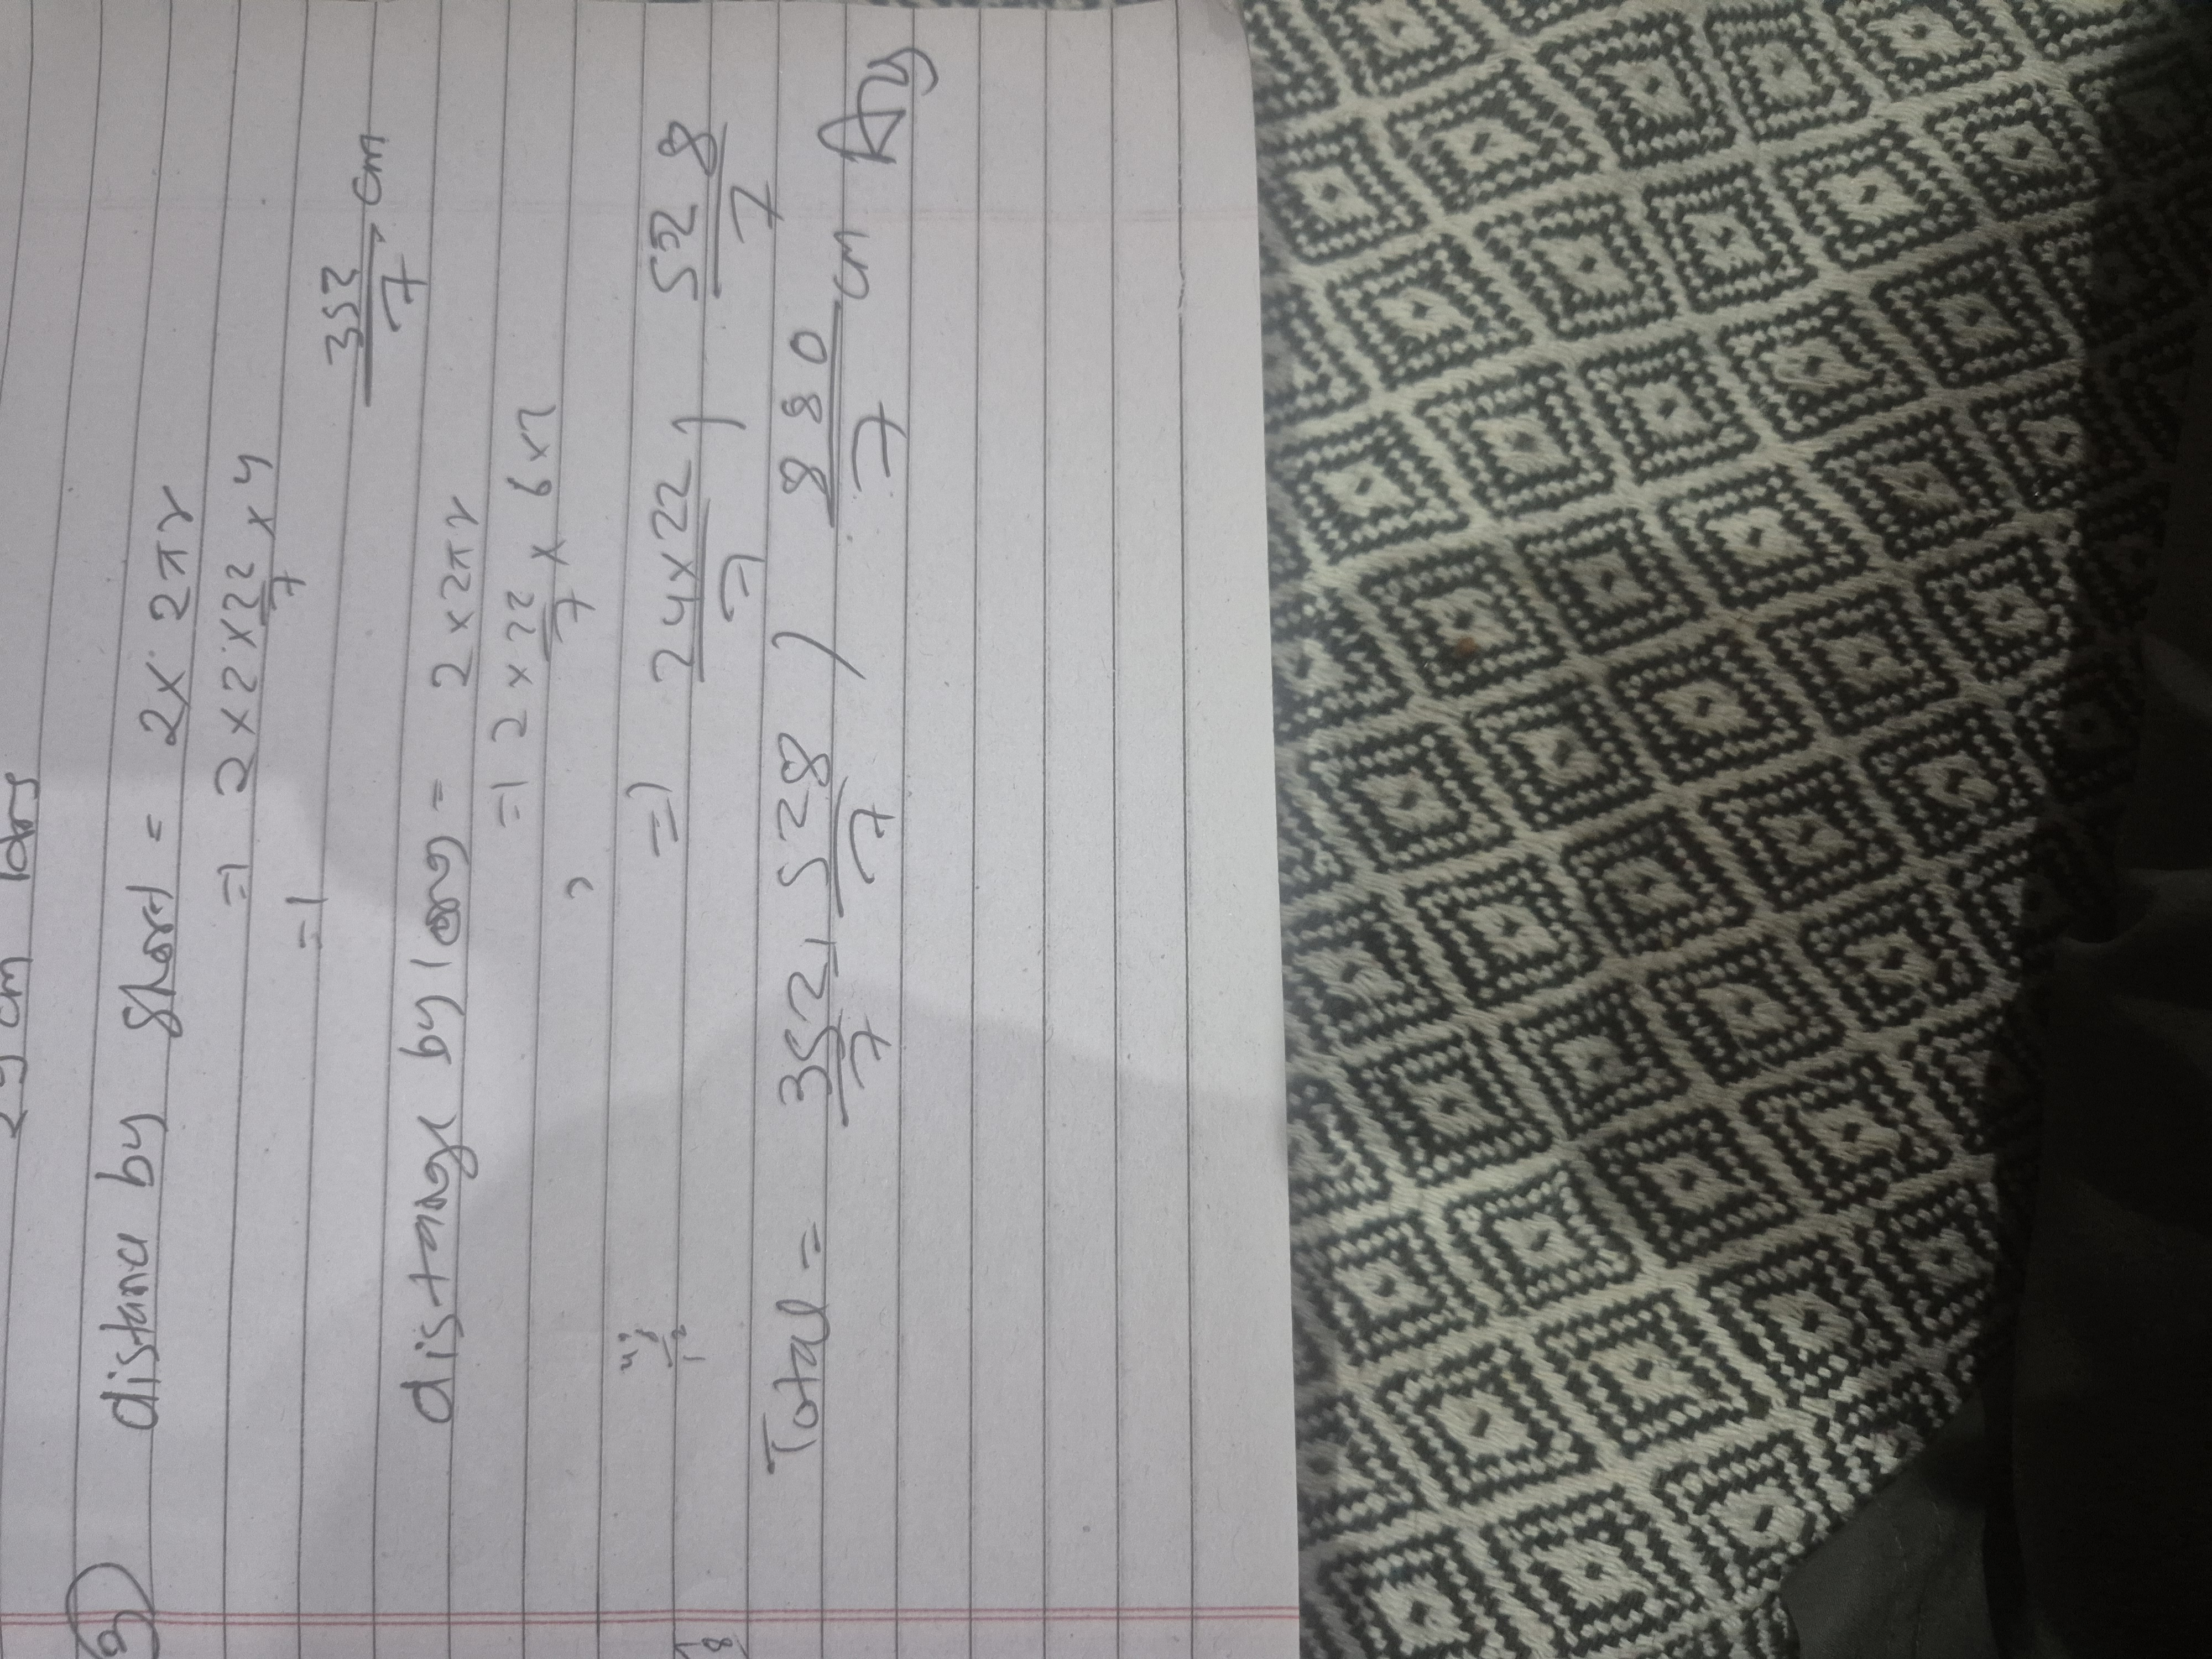 2 g cm long
3) distance by short = 2 × 2πr
=) 2 × 2 × 22/7 × 4
=) 352/7 cm
distange by long = 2 × 2πr
=) 2 × 22/7 × 6 × 2
=) 24×22/7 ) 528/7
Total = 352/7, 528/7 ) 880/7 cm Ans